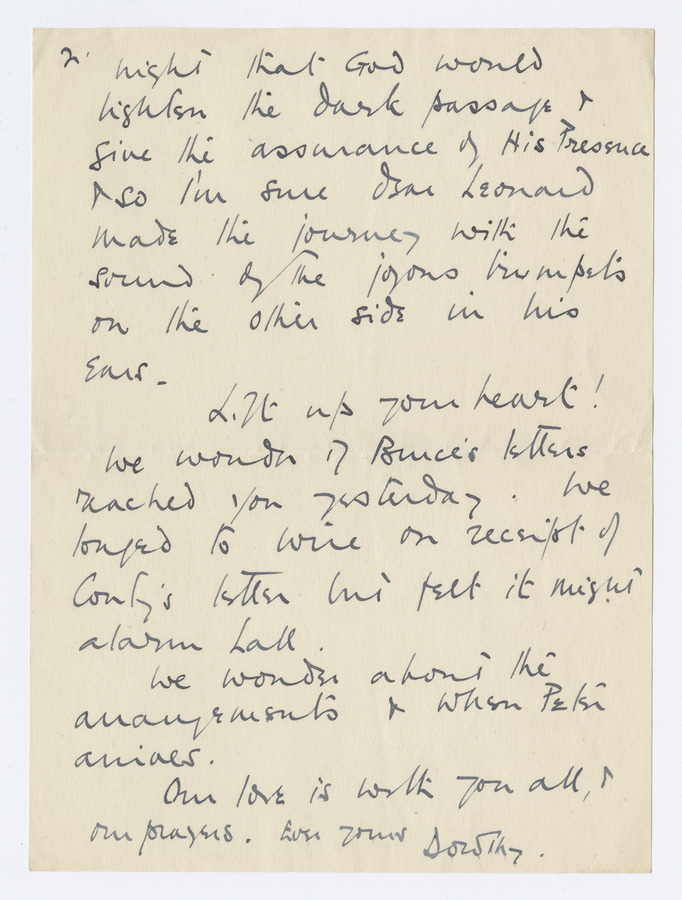 2. night that God would
lighten the dark passage &
give the assurance of His Presence
& so I'm sure dear Leonard
made the journey with the
sound of the joyous trumpets
on the other side in his
ears.
Lift up your heart!
We wonder if Bruce's letters
reached you yesterday. We
longed to wire on receipt of
letter but felt it might
alarm Lall.
We wonder about the
arrangements & when Peter
arrives.
Our love is with you all, &
our prayers. Ever yours Dorothy.